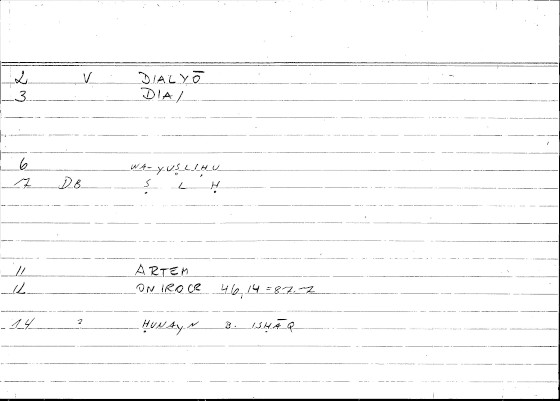 2 V DIALYŌ
3 DIA/
6 WA-YUṢLIḤU
7 DB Ṣ L Ḥ
11 ARTEM
12 ONIROCR 46,14 =
14 ḤUNAYN B. ISḤĀQ